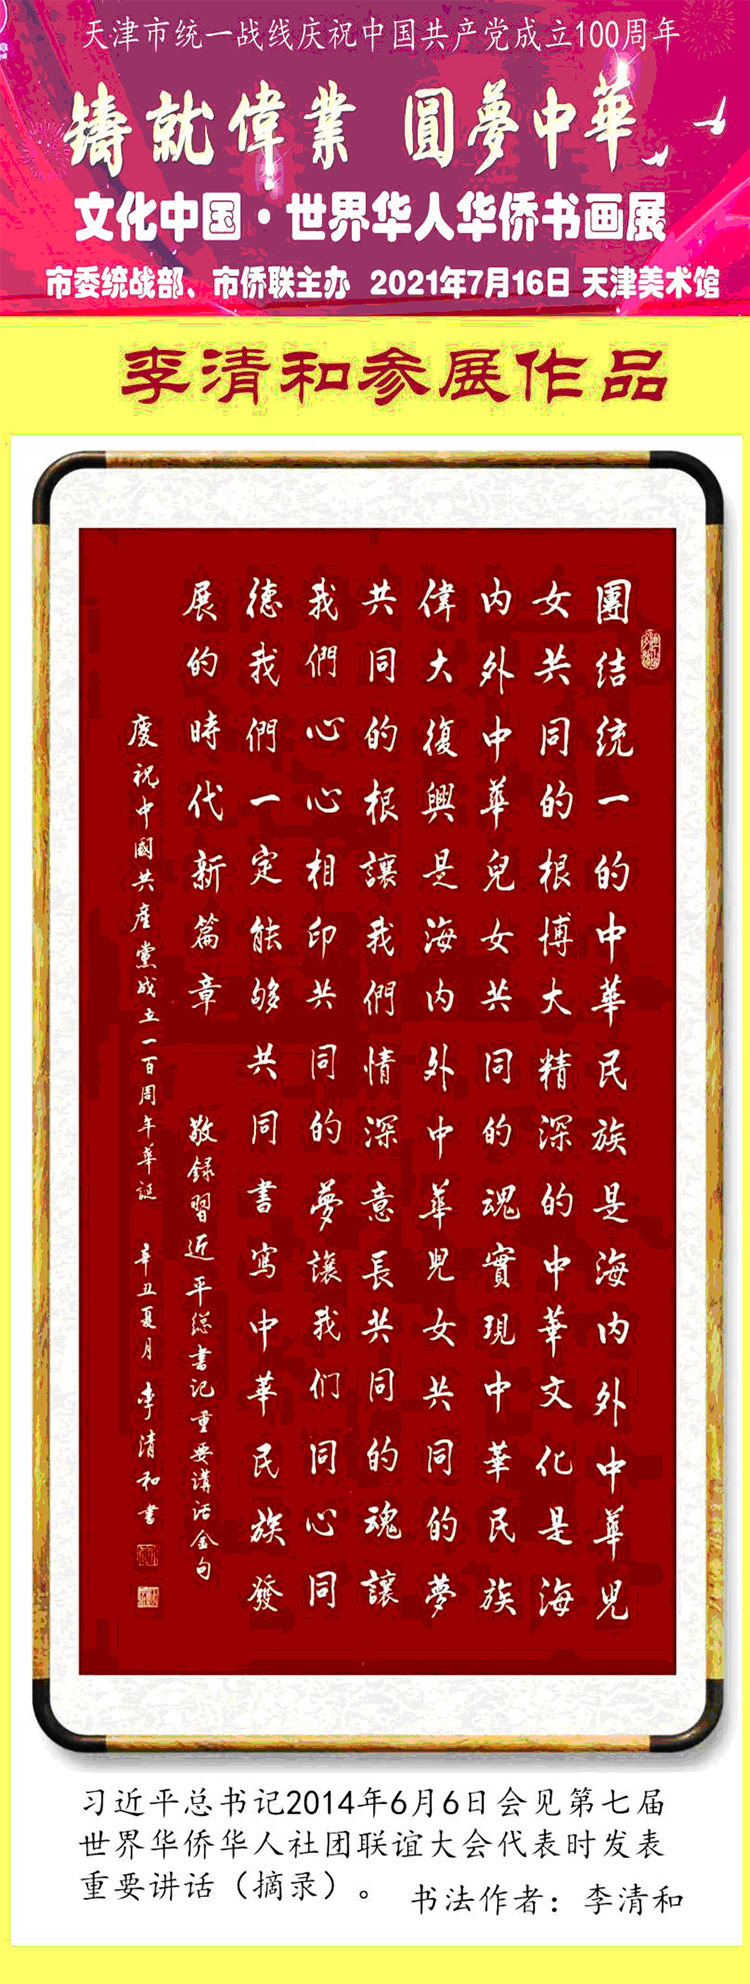 天津市统一战线庆祝中国共产党成立100周年
鑄就偉業 圓夢中華
文化中国·世界华人华侨书画展
市委统战部、市侨联主办 2021年7月16日 天津美术馆
李清和参展作品
團结统一的中華民族是海内外中華兒
女共同的根博大精深的中華文化是海
内外中華兒女共同的魂實現中華民族
偉大復興是海内外中華兒女共同的夢
共同的根讓我們情深意長共同的魂讓
我們心心相印共同的夢讓我们同心同
德我們一定能够共同書寫中華民族發
展的時代新篇章 敬録習近平總書记重要講话金句
慶祝中國共產黨成立一百周年華誕 辛丑夏月 李清和書
习近平总书记2014年6月6日会见第七届
世界华侨华人社团联谊大会代表时发表
重要讲话（摘录）。 书法作者：李清和